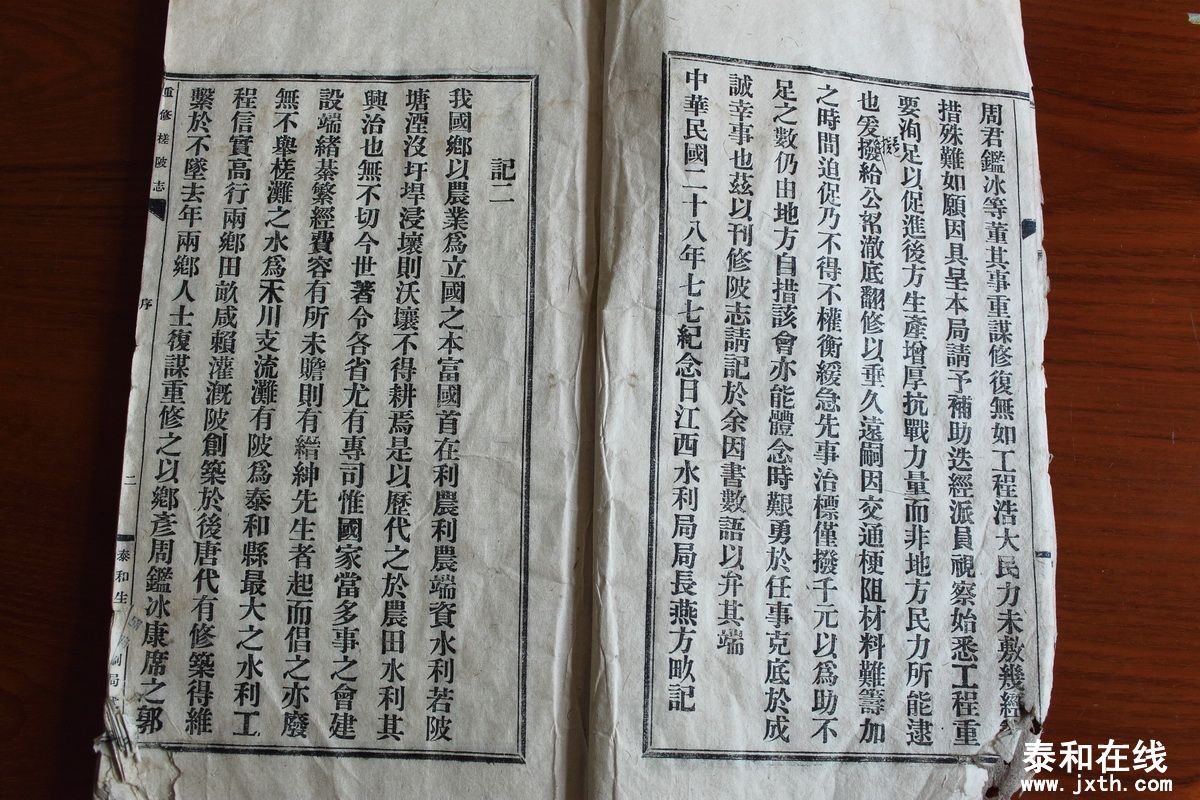 周君鑑冰等董其事重謀修復無如工程浩大民力未敷幾經
措殊難如願因具呈本局請予補助迭經派員視察始悉工程重
要洵足以促進後方生產增厚抗戰力量而非地方民力所能逮
也爰撥給公帑澈底翻修以垂久遠嗣因交通梗阻材料難籌加
之時間迫促乃不得不權衡緩急先事治標僅撥千元以爲助不
足之數仍由地方自措該會亦能體念時艱勇於任事克底於成
誠幸事也茲以刊修陂志請記於余因書數語以弁其端
中華民國二十八年七七紀念日江西水利局局長燕方畞記
記二
我國鄉以農業爲立國之本富國首在利農利農端資水利若陂
塘湮沒圩埠浸壞則沃壤不得耕焉是以歷代之於農田水利其
興治也無不切今世著令各省尤有專司惟國家當多事之會建
設端緒綦繁經費容有所未贍則有縉紳先生者起而倡之亦廢
無不舉槎灘之水爲禾川支流灘有陂爲泰和縣最大之水利工
程信實高行兩鄉田畝咸賴灌漑陂創築於後唐代有修築得維
繫於不墜去年兩鄉人士復謀重修之以鄉彥周鑑冰康席之郭
重修槎陂志
序
二
泰和生
局
泰和在线
www.jxth.com